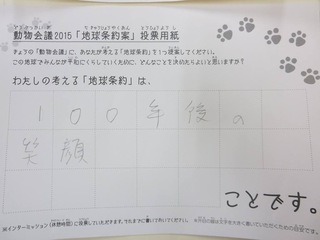 動物会議2015「地球条約案」投票用紙
きょうの「動物会議」に、あなたが考える「地球条約」を1つ提案してください。
この地球でみんなが平和にくらしていくために、どんなことを決めたらよいと思いますか?
わたしの考える「地球条約」は、
100年後の
笑顔
ことです。
※インターミッション(休憩時間)に投票していただきます。それまでに書いておいてください。